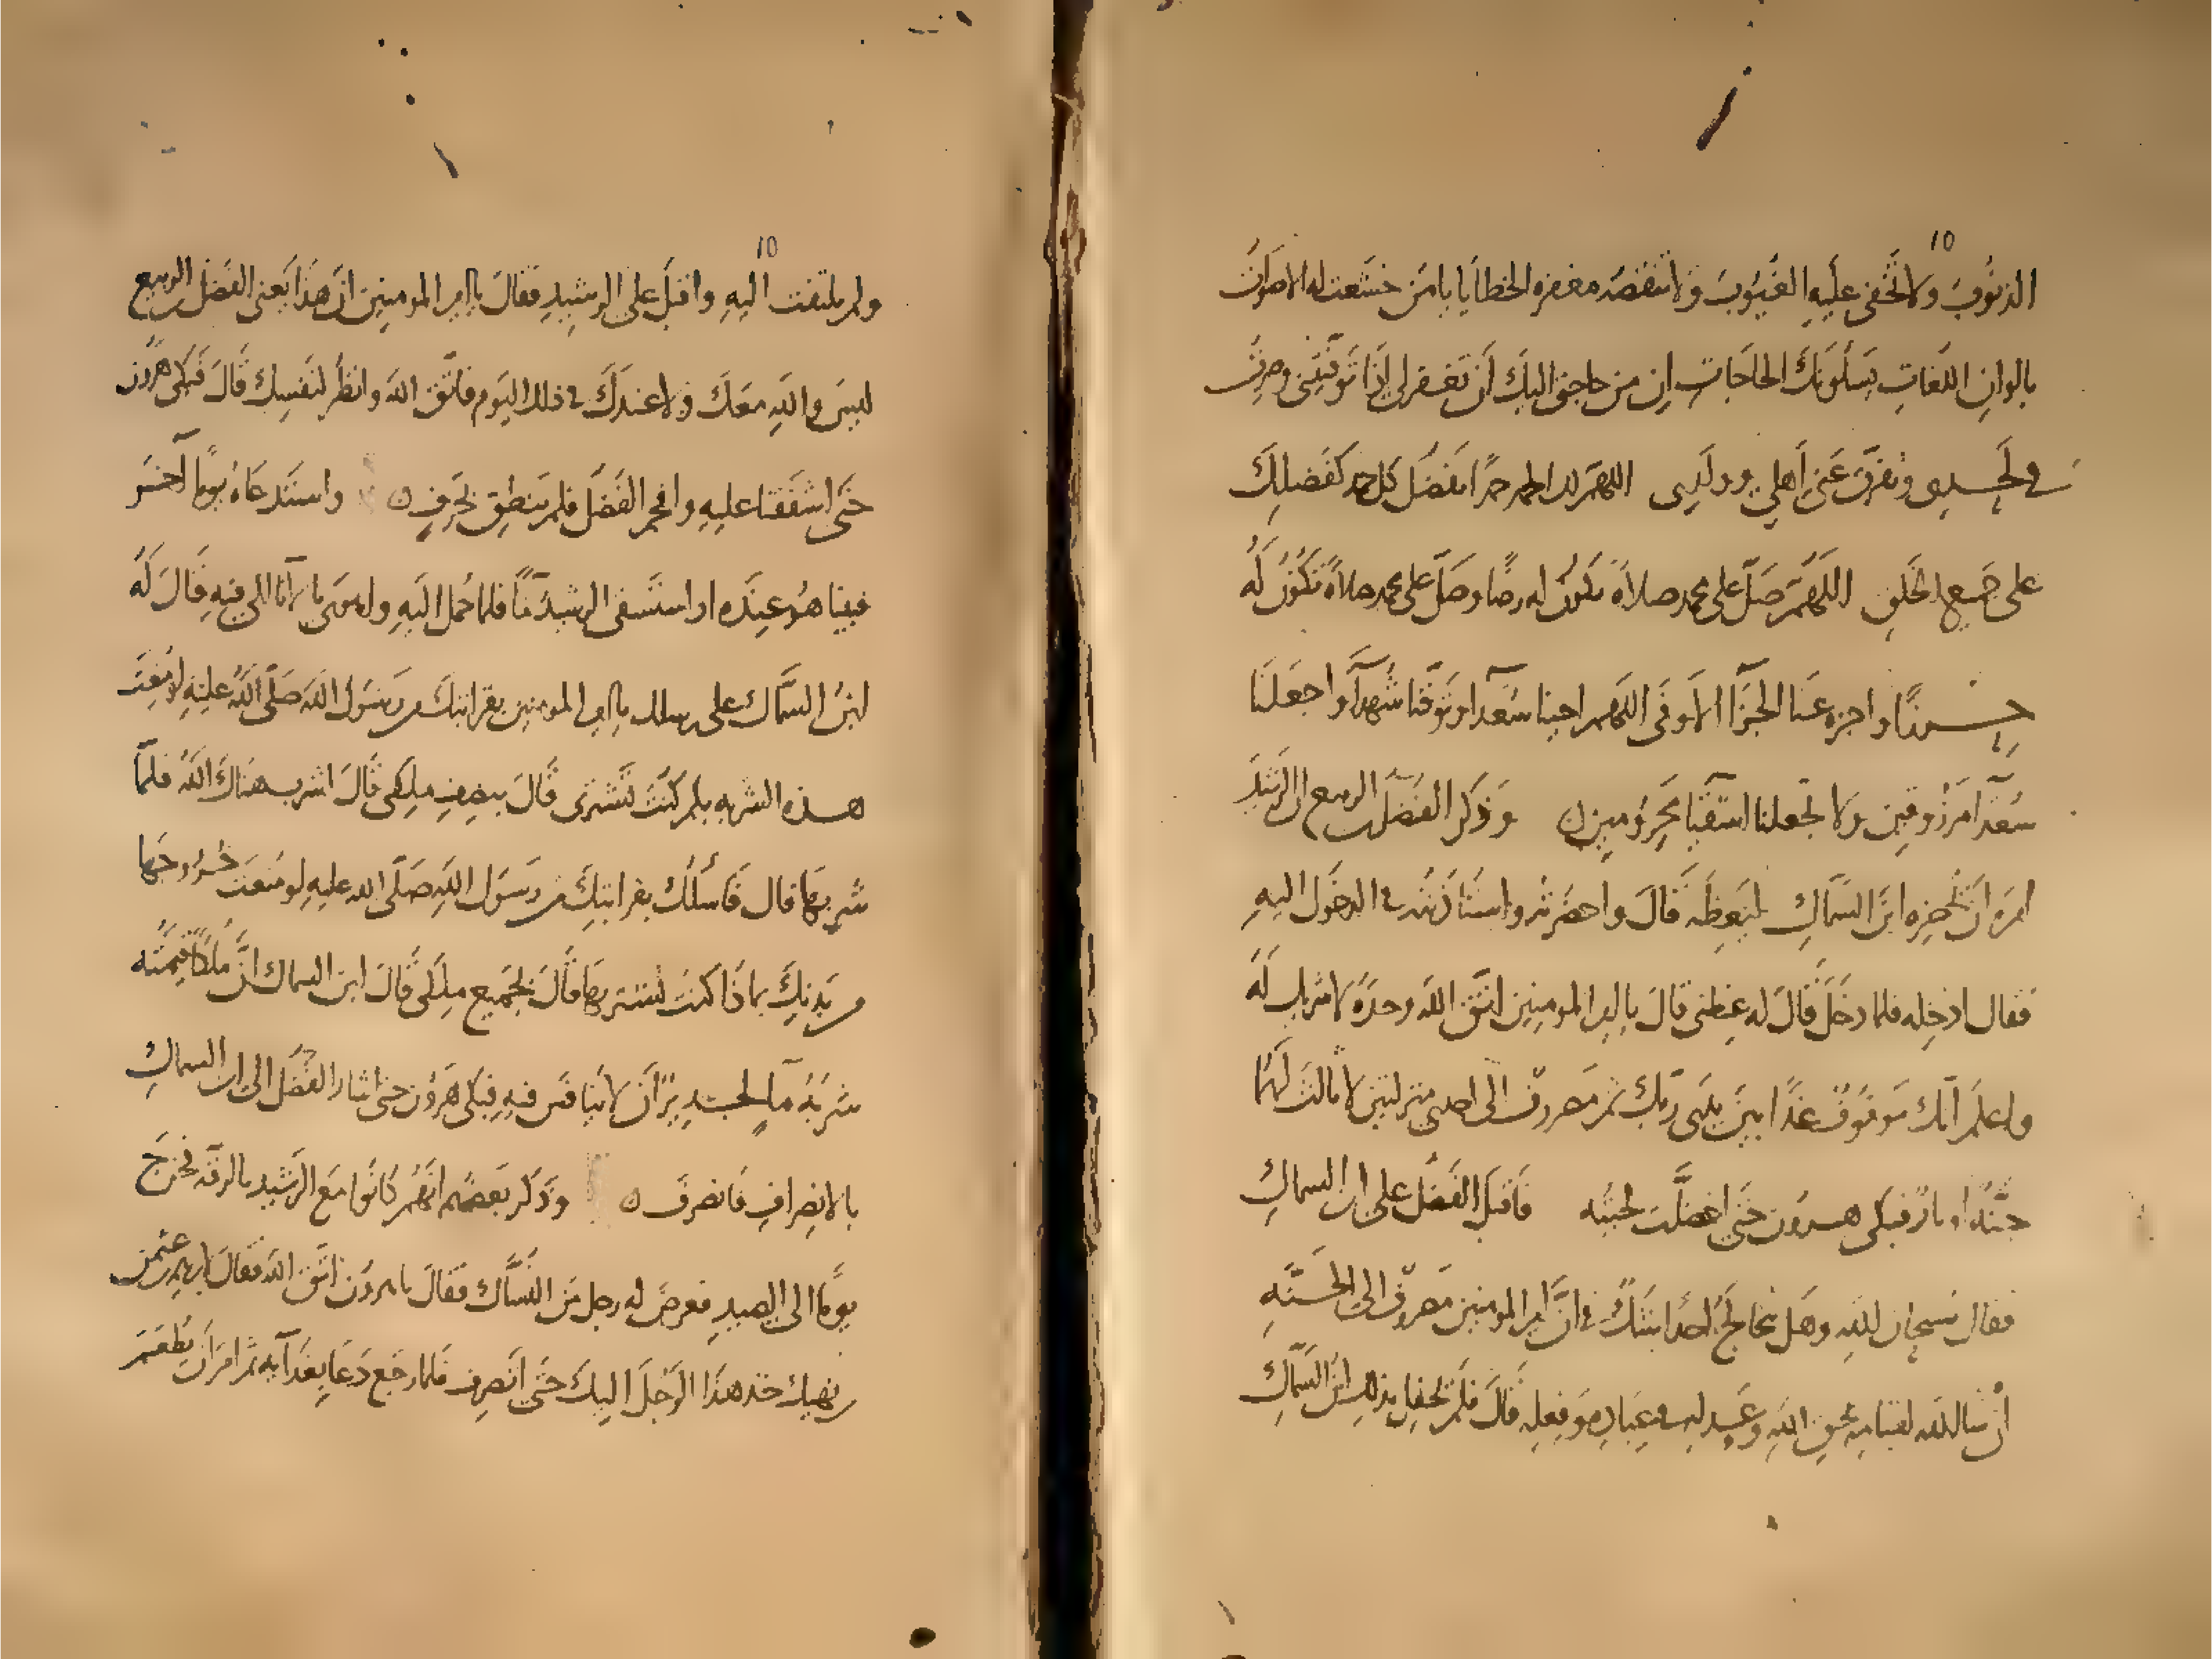 10
الذنوب ولا تخفى عليه الغيوب ولا تنقصه مغفره الخطايا يا من خشعت له الاصوات
بالوان اللغات يسلونك الحاجات ان من حاجتي اليك ان تغفر لي اذا توفيتني وصرت
في لحدي وتفرق عني اهلي وولدي اللهم لك الحمد حمدا يفضل كل حمد كفضلك
على جميع الخلق اللهم صل على محمد صلاة تكون له رضا وصل على محمد صلاة تكون له
حرزا واجزه عنا الجزا الاوفى اللهم احينا سعدا وتوفنا شهدا واجعلنا
سعدا مرزوقين ولا تجعلنا اشقيا محرومين وذكر الفضل بن الربيع ان الرشيد
امره ان يحضره ابن السماك ليعظه قال واحضرته واستأذنته في الدخول اليه
فقال ادخله فلما دخل قال له عظني قال يا امير المومنين اتق الله وحده لا شريك له
واعلم انك موقوف غدا بين يدي ربك ثم مصروف الى احدى منزلتين لا ثالث لهما
جنة او نار فبكى هرون حتى اخضلت لحيته فاقبل الفضل على ابن السماك
فقال سبحان الله وهل يخالج احدا شك في ان امير المومنين مصروف الى الجنه
ان شا الله لقيامه بحق الله وعدله في عباده وفعله قال فلم يحفل بذلك ابن السماك
10
ولم يلتفت اليه واقبل على الرشيد فقال يا امير المومنين ان هذا يعني الفضل بن الربيع
ليس والله معك ولا عندك في ذلك اليوم فاتق الله وانظر لنفسك قال فبكى هرون
حتى اشفقنا عليه وافحم الفضل فلم ينطق بحرف واستدعاه يوما آخر
فبينا هو عنده اذ استسقى الرشيد مآ فلما حمل اليه واهوى بالانا الى فيه قال له
ابن السماك على رسلك يا امير المومنين بقرابتك من رسول الله صلى الله عليه لو منعت
هذه الشربه بكم كنت تشتري قال بنصف ملكي قال اشرب هناك الله فلما
شربها قال فأسلك بقرابتك من رسول الله صلى الله عليه لو منعت خروجها
من بدنك بماذا كنت تشتريها قال بجميع ملكي قال ابن السماك ان ملكا قيمته
شربة مآ لجدير ان لا يتنافس فيه فبكى هرون حتى اشار الفضل الى ابن السماك
بالانصراف فانصرف وذكر بعضهم انهم كانوا مع الرشيد بالرقه فخرج
يوما الى الصيد فعرض له رجل من النساك فقال يا هرون اتق الله فقال لابرهيم بن عثمن
بن نهيك خذ هذا الرجل اليك حتى انصرف فلما رجع دعا بغدآيه ثم امر ان يطعم